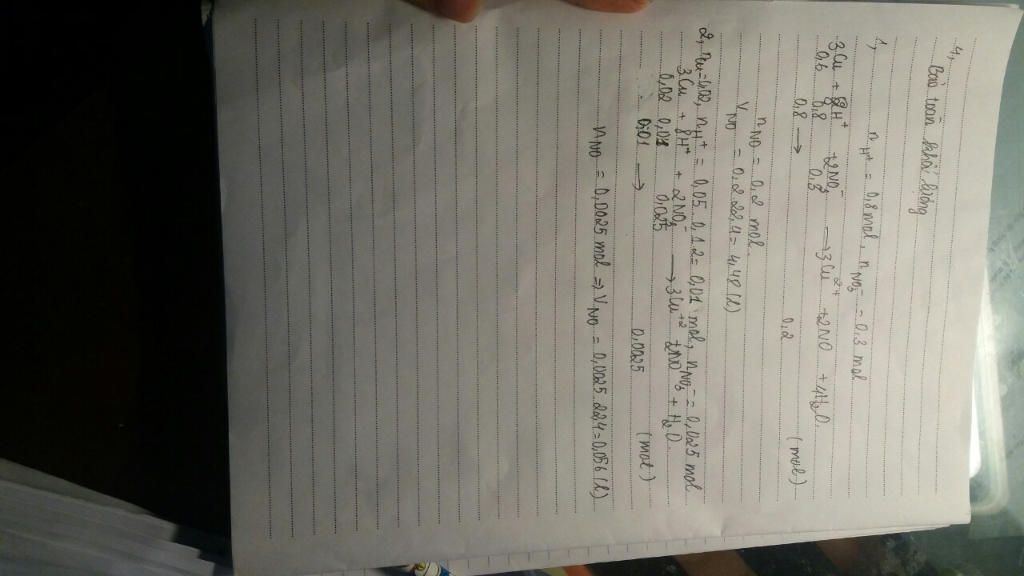 4,
Bảo toàn khối lượng
1, n H+ = 0,8 mol, n NO3- = 0,3 mol
3Cu + 8H+ + 2NO3- → 3Cu2+ + 2NO + 4H2O.
0,6 0,8 0,3
0,8 → 0,2 (mol)
n NO = 0,2 mol.
V NO = 0,2.22,4 = 4,48 (l)
2, nCu = 0,02, n H+ = 0,05.0,1.2 = 0,01 mol, n NO3- = 0,025 mol
3Cu + 8H+ + 2NO3- → 3Cu+2 + 2NO + H2O.
0,02 0,01 0,025
0,01 → 0,0025 (mol)
n NO = 0,0025 mol ⇒ V NO = 0,0025.22,4 = 0,056 (l)